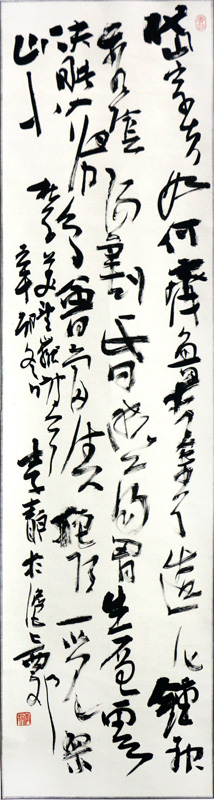 岱宗夫如何齊魯青未了造化鍾神
秀陰陽割昏曉蕩胸生層雲
決眥入歸鳥會當凌絕頂一覽眾
山小
杜子美望嶽詩
辛卯冬李靜於滬上西郊